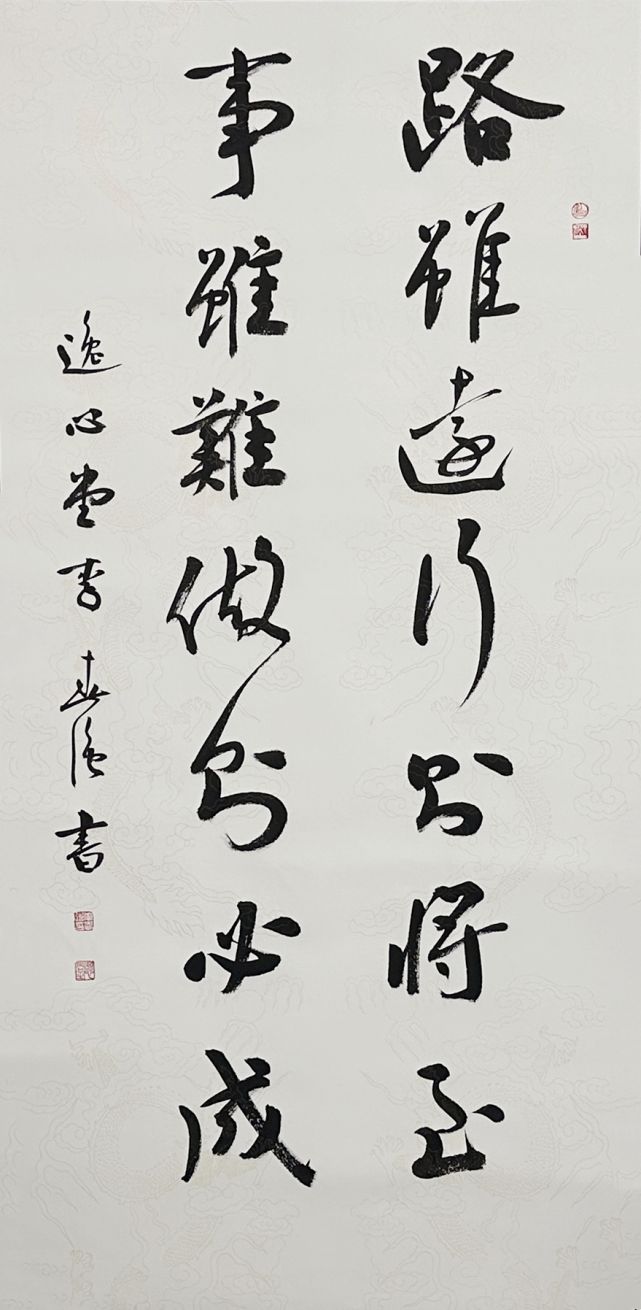 路雖遠行則將至
事雖難做則必成
逸心堂李書